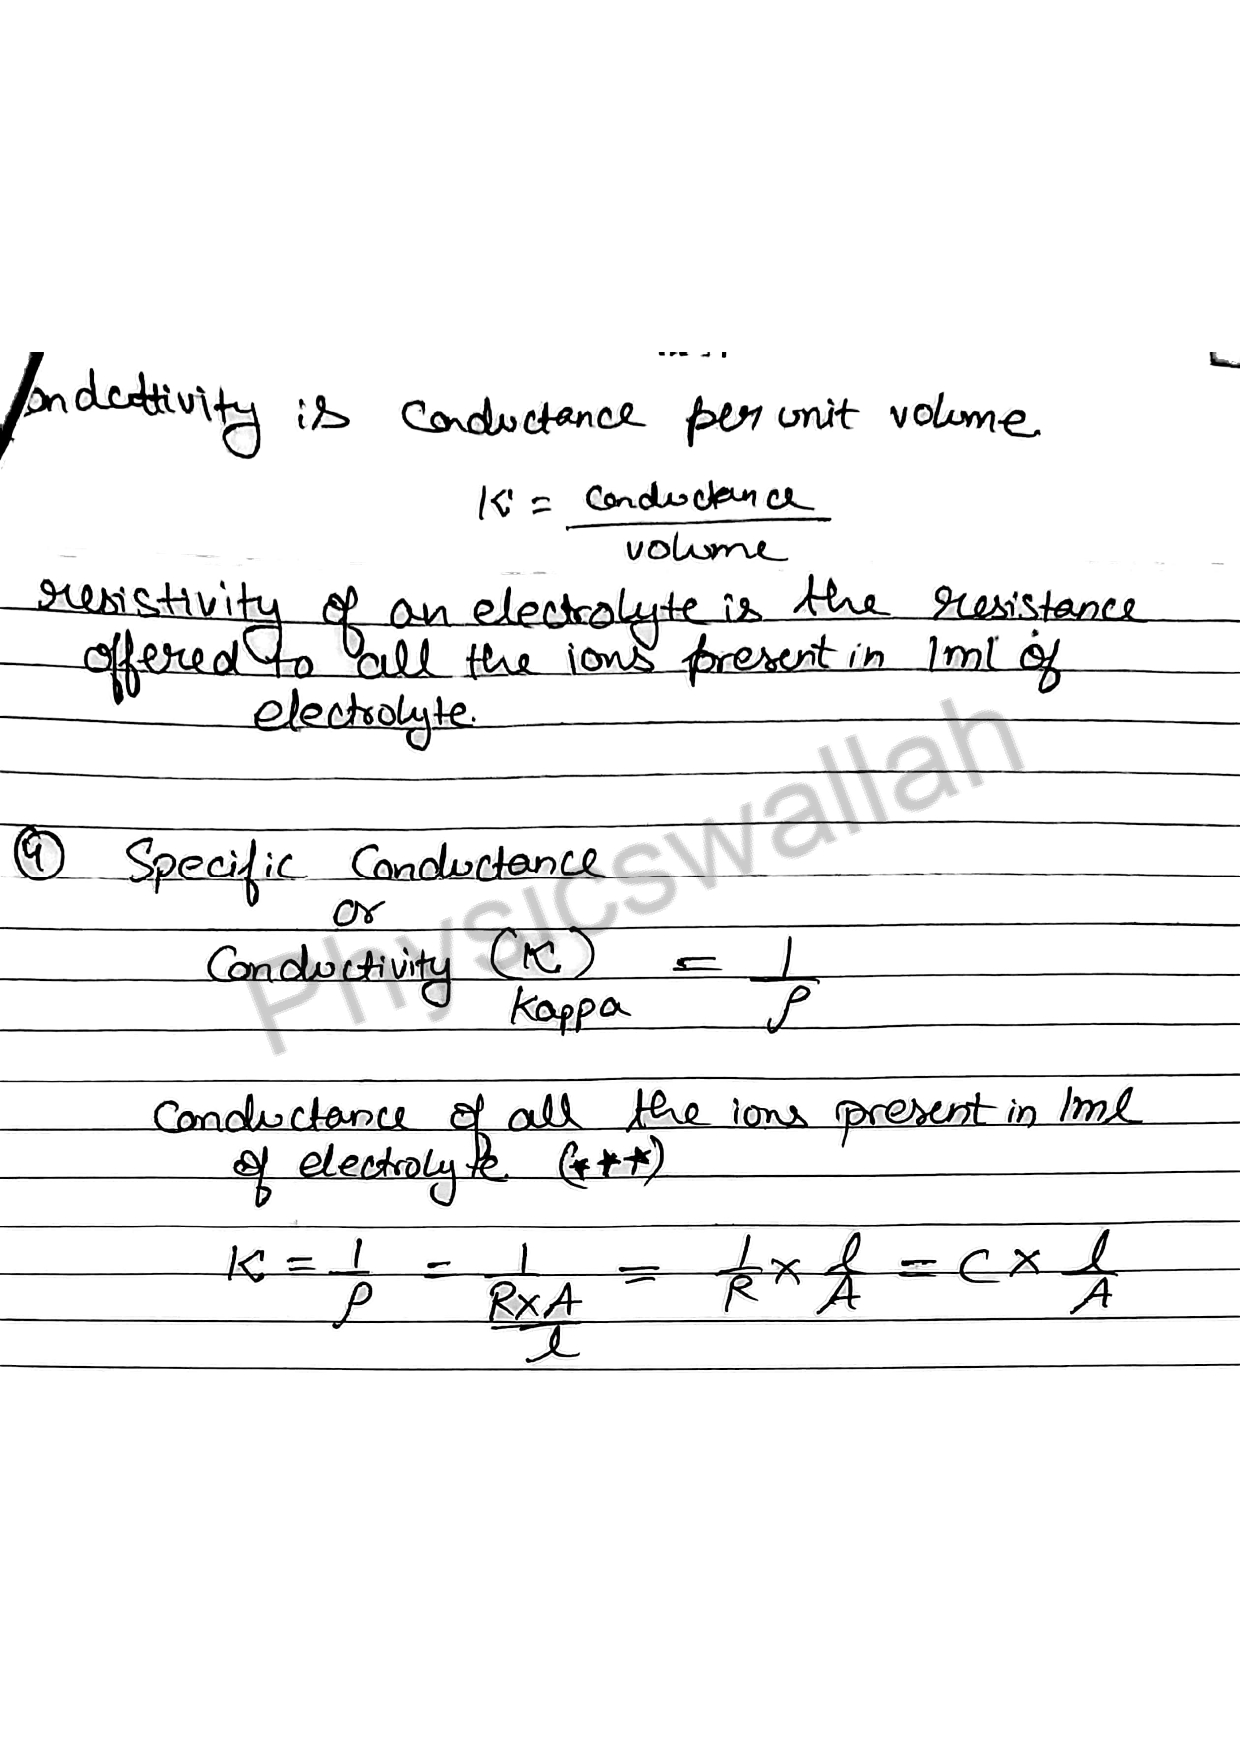 Conductivity is conductance per unit volume.
K = conductance
volume
resistivity of an electrolyte is the resistance
offered to all the ions present in 1ml of
electrolyte.
Physicswallah
④ Specific Conductance
or
Conductivity (K) = 1/ρ
Kappa
Conductance of all the ions present in 1ml
of electrolyte. (★★★)
K = 1/ρ = 1/(R×A/l) = 1/R × l/A = C × l/A